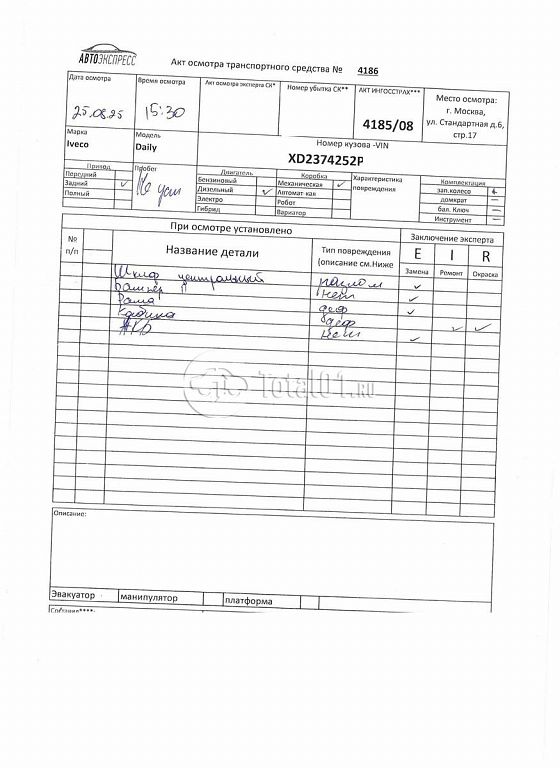 АВТОЭКСПРЕСС
Акт осмотра транспортного средства № 4186
Дата осмотра
25.08.25
Время осмотра
15:30
Акт осмотра эксперта СК*
Номер убытка СК**
АКТ ИНГОССТРАХ***
4185/08
Место осмотра:
г. Москва,
ул. Стандартная д.6,
стр.17
Марка
Iveco
Модель
Daily
Номер кузова -VIN
XD2374252P
Привод
Передний
Задний
Полный
Пробег
Не уст
Двигатель
Бензиновый
Дизельный
Электро
Гибрид
Коробка
Механическая
Автомат кая
Робот
Вариатор
Характеристика
повреждения
Комплектация
зап.колесо
домкрат
бал. Ключ
Инструмент
№
п/п
При осмотре установлено
Название детали
Тип повреждения
(описание см.Ниже
Заключение эксперта
E I R
Замена Ремонт Окраска
центральный
Бампер П
Рама деф
Кабина деф
АКБ
Total01.RU
Описание:
Эвакуатор манипулятор платформа